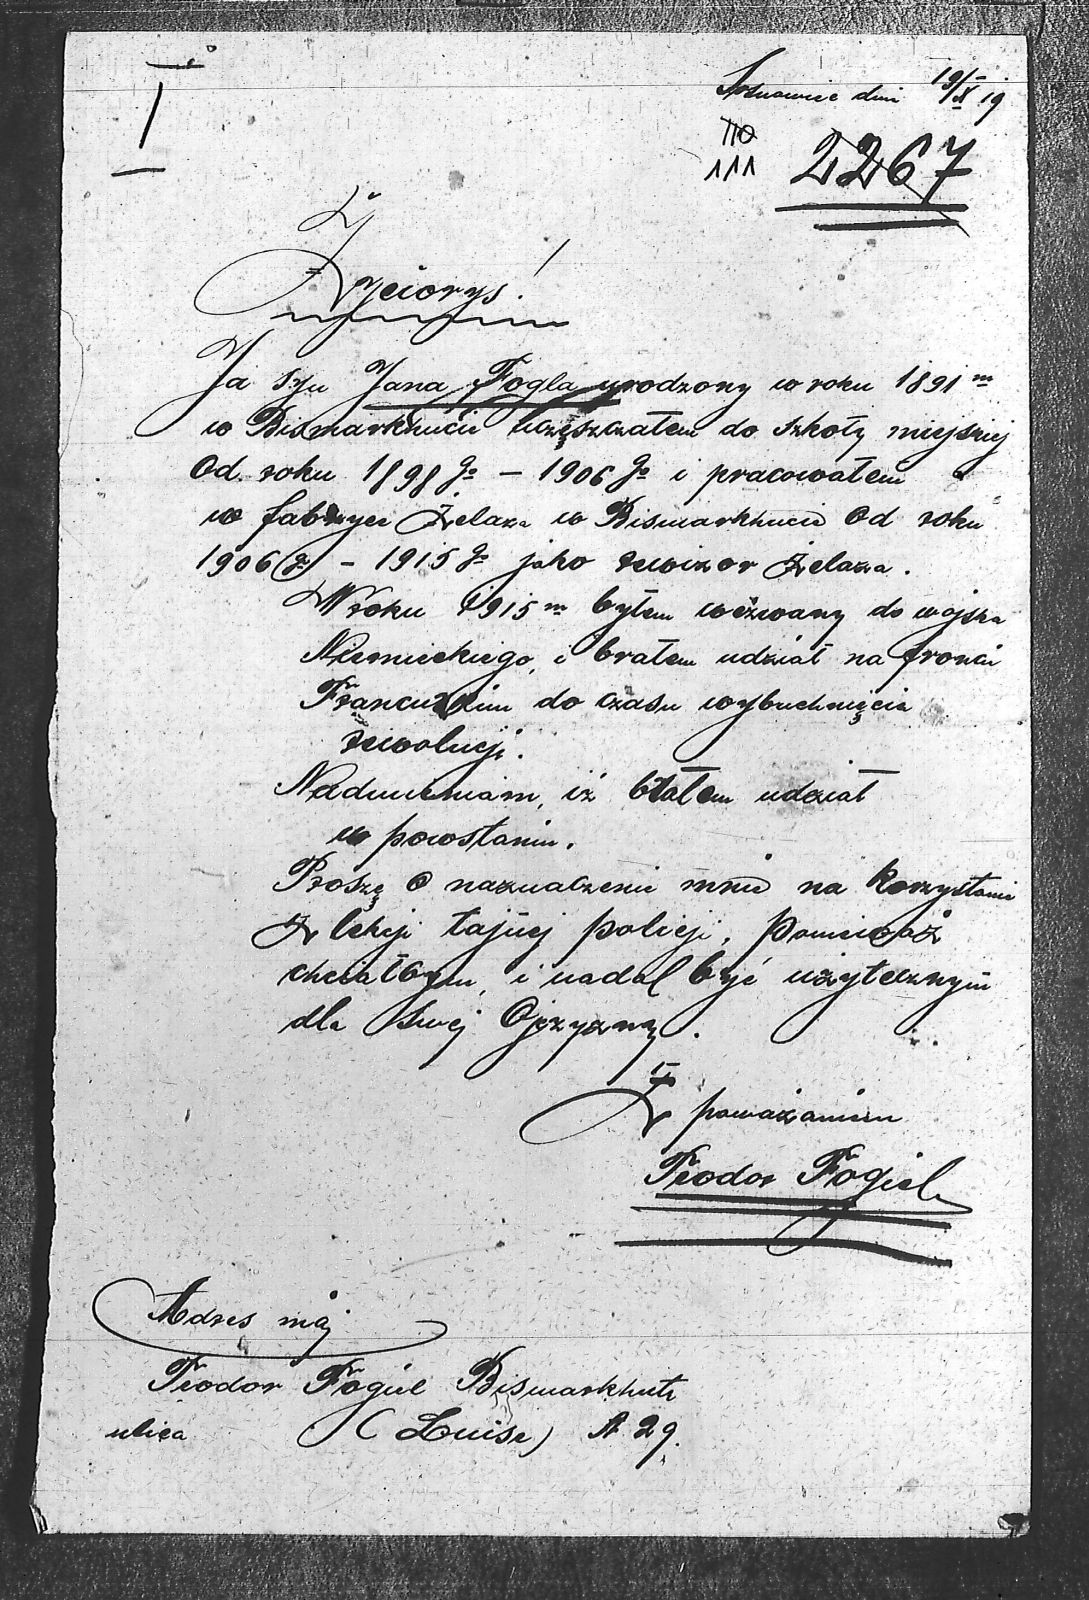 I
Sosnowiec dnia 19/X 19
110
111 2267
Życiorys!
Ja syn Jana Fogla urodzony w roku 1891 m
w Bismarkhucie uczęszczałem do szkoły miejskiej
Od roku 1898 go – 1906 go i pracowałem
w fabryce Żelaza w Bismarkhucie Od roku
1906 go – 1915 go jako rewizor Żelaza.
W roku 1915 m byłem wezwany do wojska
Niemieckiego, i brałem udział na froncie
Francuzkim do czasu wybuchnięcia
rewolucji.
Nadmieniam, iż brałem udział
w powstaniu.
Proszę o naznaczenie mnie na korzystanie
Z lekcji tajnej policji, ponieważ
chciałbym, i nadal być użytecznym
dla Swej Ojczyzny.
Z poważaniem
Teodor Fogiel
Adres mój
Teodor Fogiel Bismarkhuta
ulica (Luise) N 29.